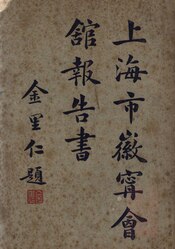 上海市徽寜會
舘報告書
金里仁題